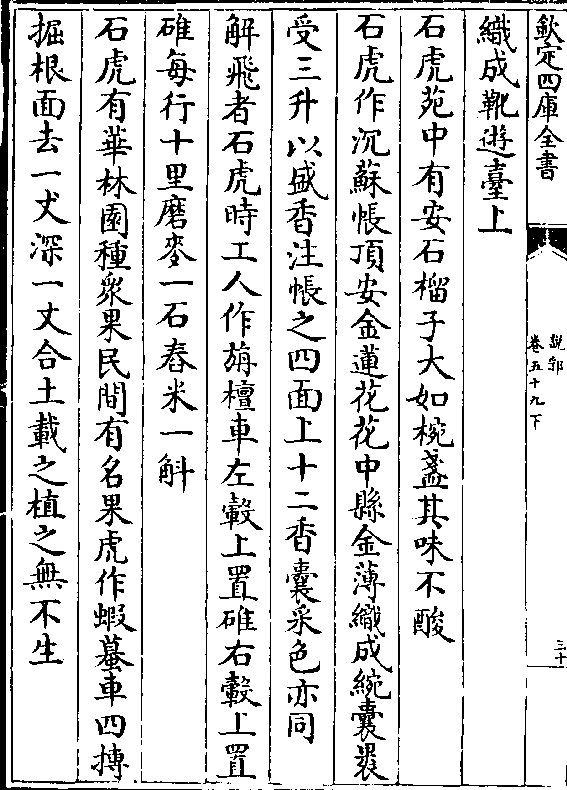 欽定四庫全書
說郛
卷五十九下
三十
織成靴遊臺上
石虎苑中有安石榴子大如椀盞其味不酸
石虎作沉蘇帳頂安金蓮花花中縣金薄織成綩囊囊
受三升以盛香注帳之四面上十二香囊采色亦同
解飛者石虎時工人作旃檀車左轂上置碓右轂上置
碓每行十里磨麥一石舂米一斛
石虎有華林園種衆果民間有名果虎作蝦蟇車四摶
掘根面去一丈深一丈合土載之植之無不生